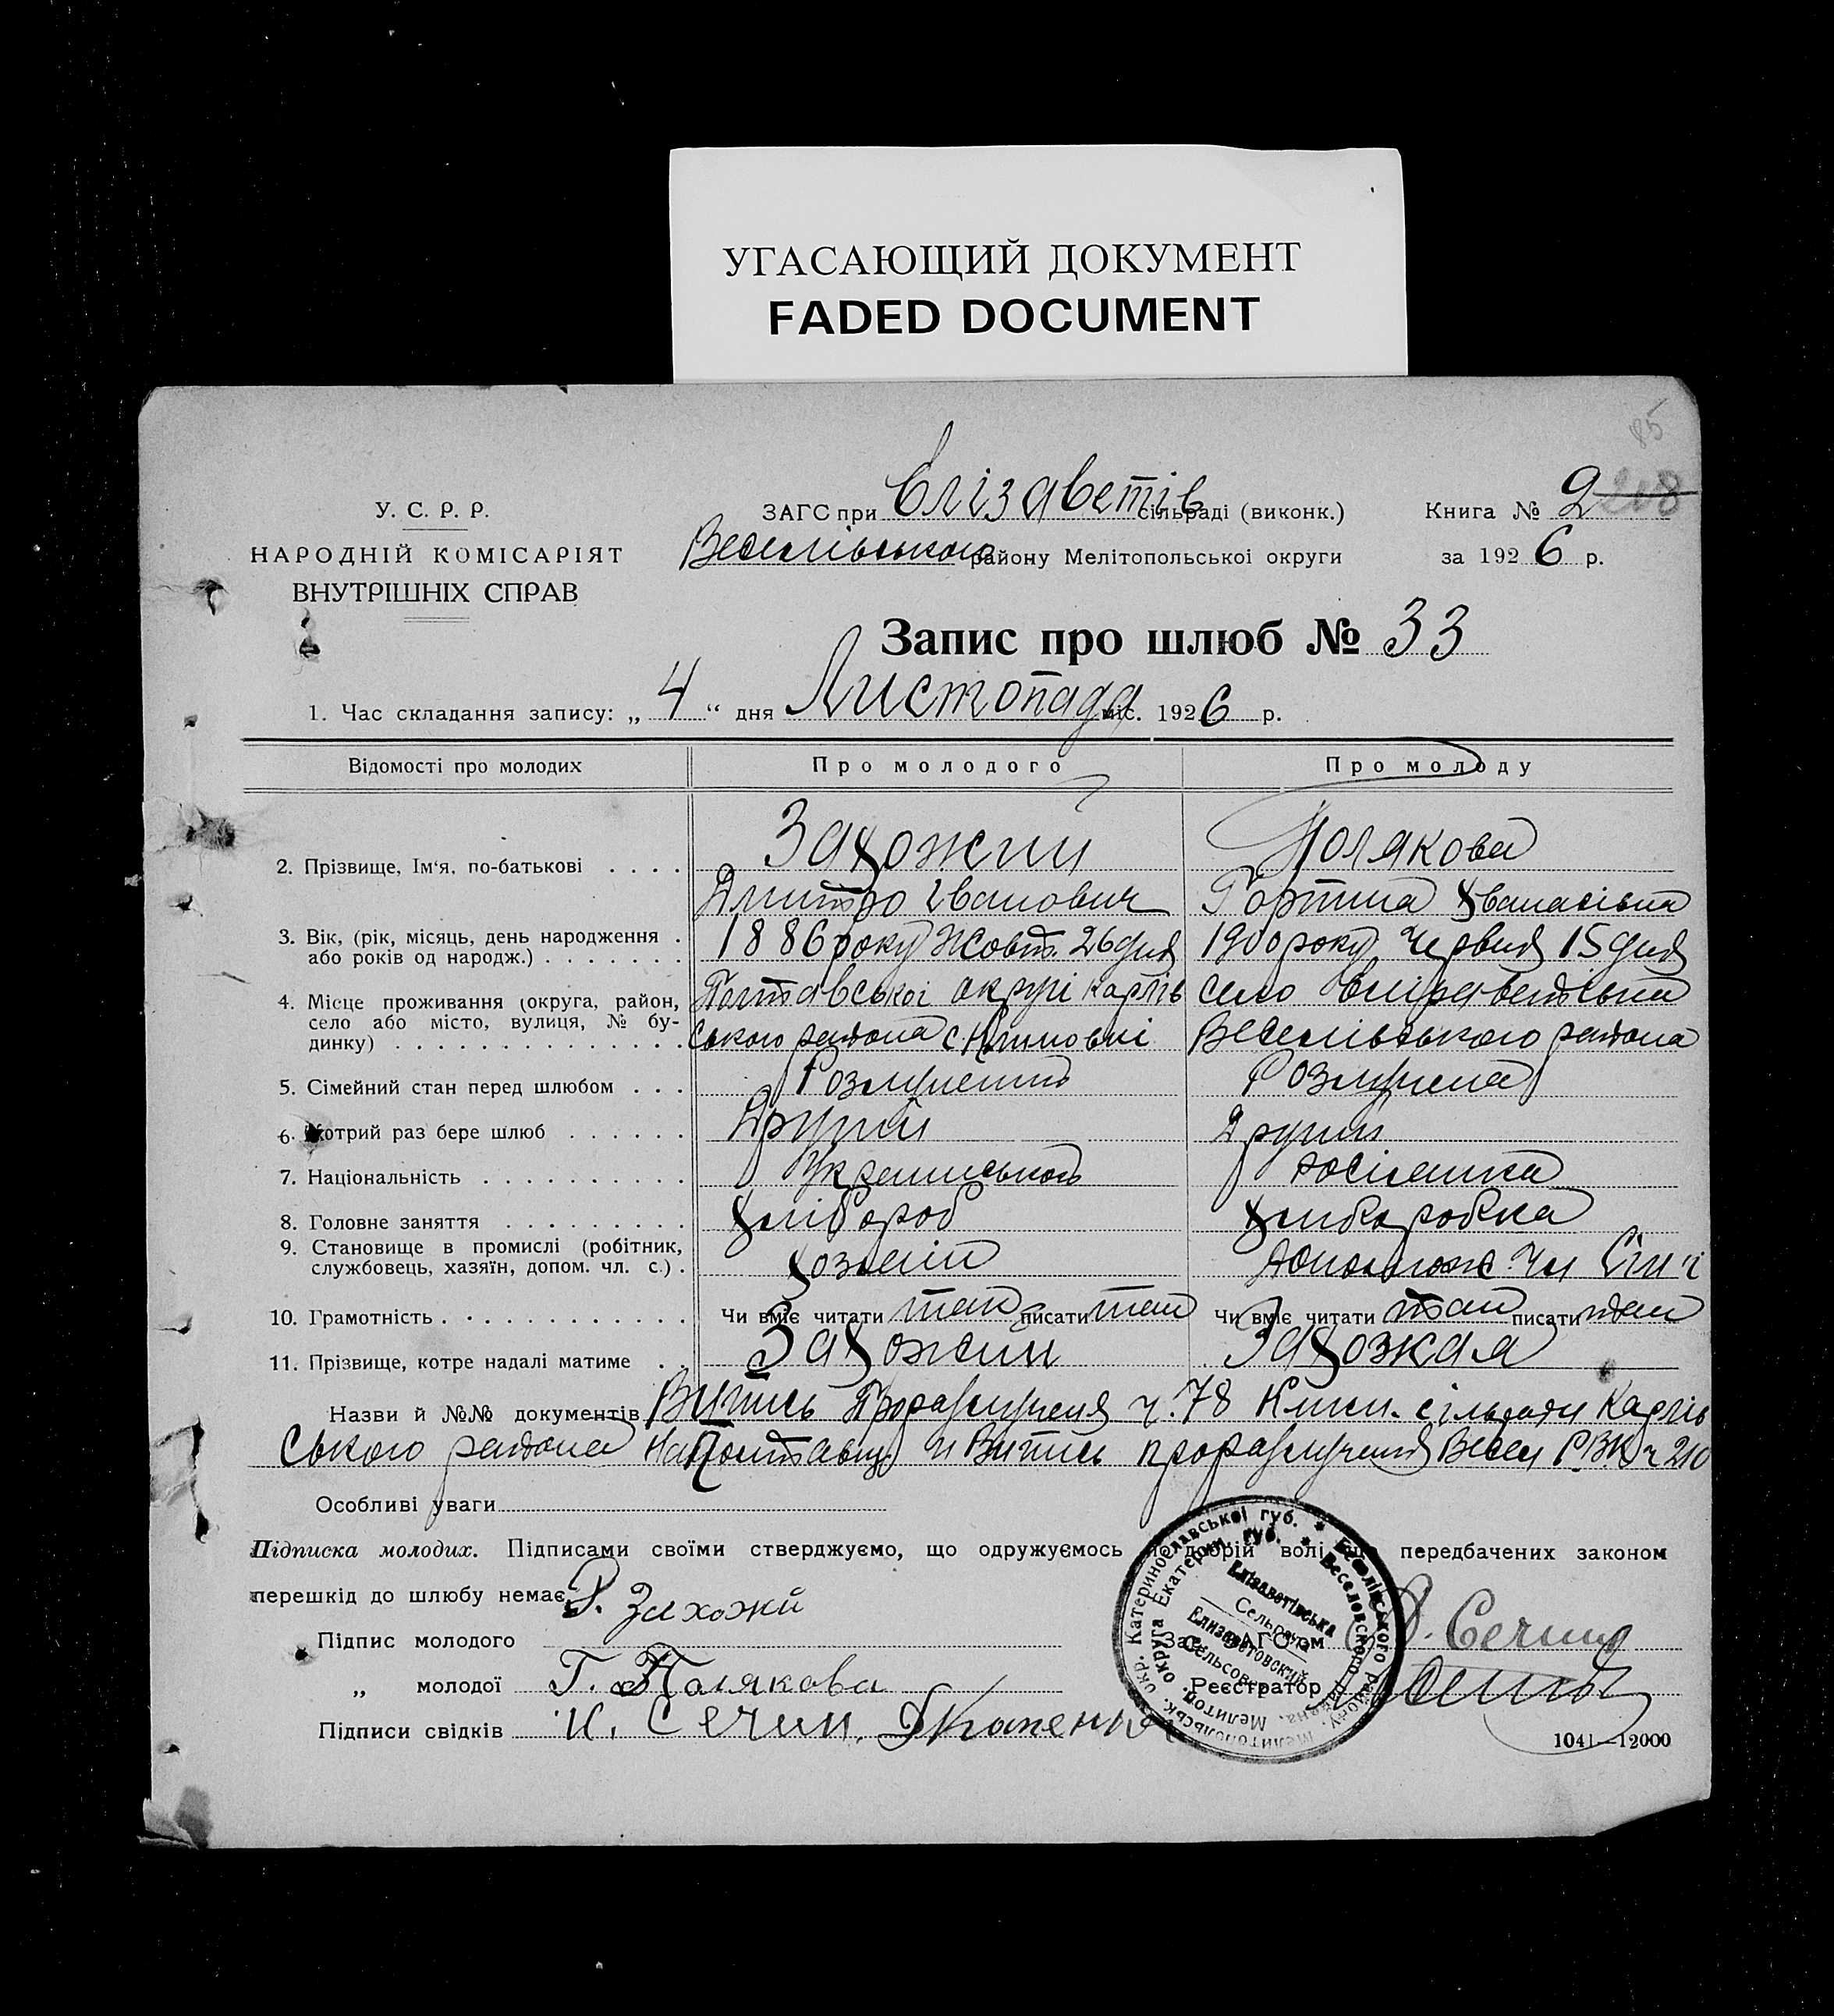 УГАСАЮЩИЙ ДОКУМЕНТ
FADED DOCUMENT
85
208
У. С. Р. Р.
НАРОДНІЙ КОМІСАРІЯТ
ВНУТРІШНІХ СПРАВ
ЗАГС при Єлізаветів сільраді (виконк.)
Веселівського району Мелітопольської округи
Книга № 2
за 1926 р.
Запис про шлюб № 33
1. Час складання запису: „ 4 “ дня Листопада міс. 1926 р.
Відомості про молодих Про молодого Про молоду
2. Прізвище, Ім'я, по-батькові . . . . Захожий Полякова
Дмитро Іванович
3. Вік, (рік, місяць, день народження . 1886 року Жовт. 26 дня 1900 року Червня 15 дня
або років од народж.) . . . . . . .
4. Місце проживання (округа, район, Полтавської округі Карлів село Єлізаветівка
село або місто, вулиця, № бу-
динку) . . . . . . . . . . . . . . ського района с. Веселівського района
5. Сімейний стан перед шлюбом . . . Розлучений Розлучена
6. Котрий раз бере шлюб . . . . . . Другий Другий
7. Національність . . . . . . . . . . Росіянка
8. Головне заняття . . . . . . . . . Хлібороб Хліборобка
9. Становище в промислі (робітник,
службовець, хазяїн, допом. чл. с.) . Хозяїн Допомож. Чл Сім'ї
10. Грамотність . . . . . . . . . . . . Чи вміє читати так писати так Чи вміє читати так писати так
11. Прізвище, котре надалі матиме . . Захожий Захожая
Назви й №№ документів Витись ч. 78 сільради Карлів
ського района Витись Весел Р.В.К ч 210
Особливі уваги
Підписка молодих. Підписами своїми стверджуємо, що одружуємось по добрій волі що передбачених законом
перешкід до шлюбу немає.
Підпис молодого Захожй
„ молодої Г. Полякова
Підписи свідків И. Сечин,
Зав. ЗАГС'ом Сечин
Реєстратор
Мелитопольськ. окр. Катеринославської губ. * Веселівського району.
Мелитоп. округа Екатерин. губ. * Веселовского района.
Єлізаветівська
Сельрада
Елизаветовский
Сельсовет
1041—12000